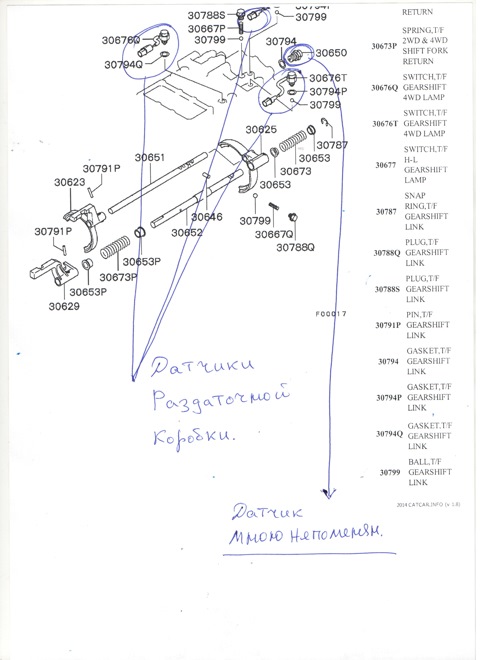 30788S
30667P
30799
30794P
30799
30794
30650
30676Q
30794Q
30676T
30794P
30799
30625
30787
30653
30673
30653
30651
30791P
30623
30791P
30646
30652
30799
30667Q
30788Q
30653P
30673P
30653P
30629
F00017
RETURN
30673P SPRING,T/F
2WD & 4WD
SHIFT FORK
RETURN
30676Q SWITCH,T/F
GEARSHIFT
4WD LAMP
30676T SWITCH,T/F
GEARSHIFT
4WD LAMP
30677 SWITCH,T/F
H-L
GEARSHIFT
LAMP
30787 SNAP
RING,T/F
GEARSHIFT
LINK
30788Q PLUG,T/F
GEARSHIFT
LINK
30788S PLUG,T/F
GEARSHIFT
LINK
30791P PIN,T/F
GEARSHIFT
LINK
30794 GASKET,T/F
GEARSHIFT
LINK
30794P GASKET,T/F
GEARSHIFT
LINK
30794Q GASKET,T/F
GEARSHIFT
LINK
30799 BALL,T/F
GEARSHIFT
LINK
2014 CATCAR.INFO (v. 1.8)
Датчики
Раздаточной
коробки.
Датчик
Мною непоменян.